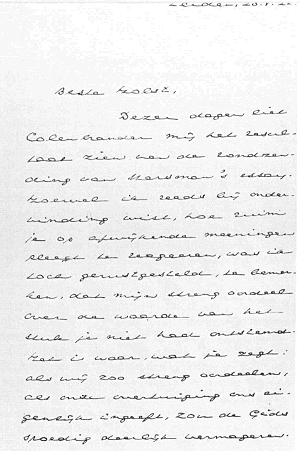 Leiden, 20.1.22.
Beste Holst,
Dezer dagen liet
Colenbrander mij het resul-
taat zien van de rondzen-
ding van Marsman's essay.
Hoewel ik reeds bij onder-
vinding wist, hoe ruim
je op afwijkende meeningen
pleegt te reageeren, was ik
toch gerustgesteld, te bemer-
ken, dat mijn streng oordeel
over de waarde van het
stuk je niet had ontstemd.
Het is waar, wat je zegt:
als wij zoo streng oordeelen,
als onze overtuiging ons ei-
genlijk ingeeft, zou de Gids
spoedig deerlijk vermageren.